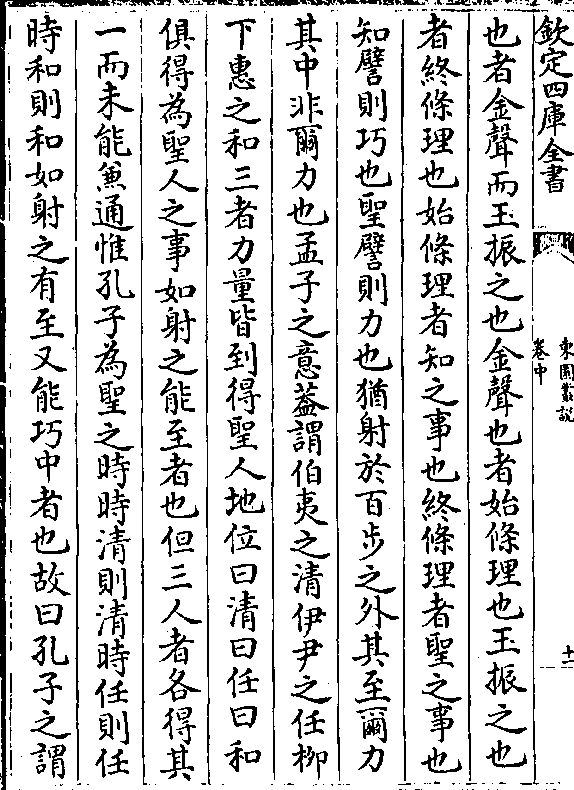 欽定四庫全書
東園叢說
卷中
十二
也者金聲而玉振之也金聲也者始條理也玉振之也
者終條理也始條理者知之事也終條理者聖之事也
知譬則巧也聖譬則力也猶射於百步之外其至爾力
其中非爾力也孟子之意葢謂伯夷之清伊尹之任柳
下惠之和三者力量皆到得聖人地位曰清曰任曰和
俱得為聖人之事如射之能至者也但三人者各得其
一而未能兼通惟孔子為聖之時時清則清時任則任
時和則和如射之有至又能巧中者也故曰孔子之謂